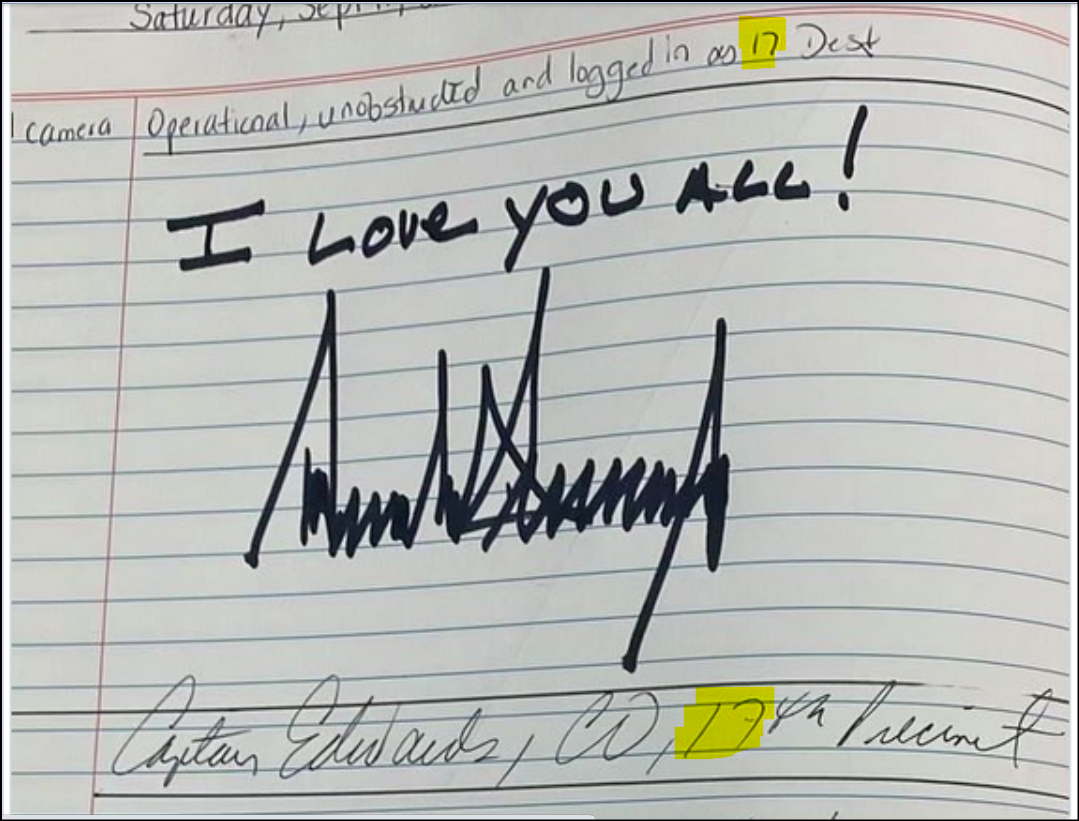 Saturday, Sept
camera
Operational, unobstructed and logged in as 17 Desk
I Love you ALL!
Captain Edwards, CO, 17th Precinct